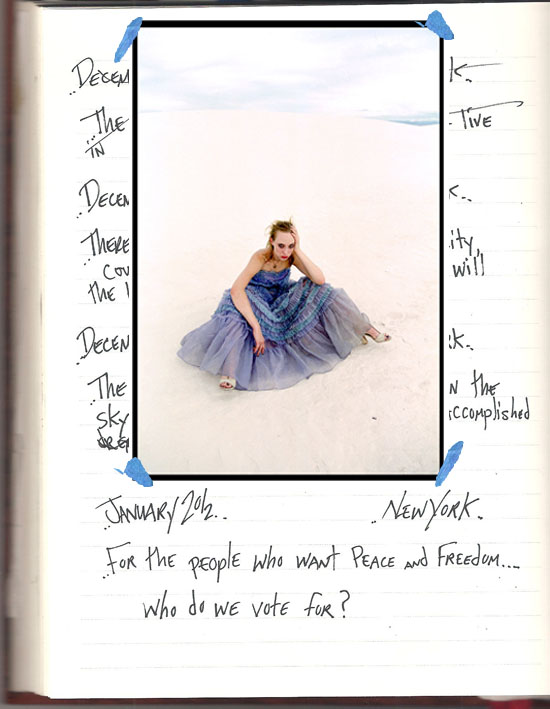 DECEM K..
..The TIVE
IN
DECEN K..
..THERE ity,
COV will
the l
DECEN K..
..The N the
sky accomplished
JANUARY 2012.. ..NEW YORK..
..FOR the people who WANT PEACE AND FREEDOM....
Who do WE VOTE FOR?